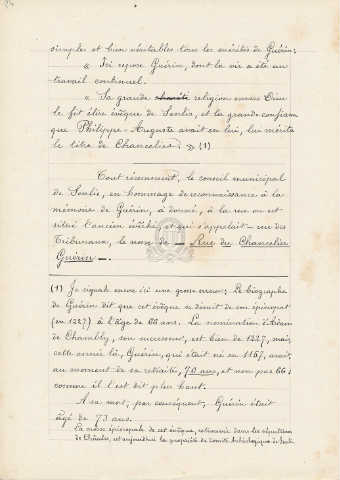 simples et bien véritables tous les mérites de Guérin;
« Ici repose Guérin, dont la vie a été un
travail continuel.
« Sa grande charité religion envers Dieu
le fit élire évêque de Senlis, et la grande confiance
que Philippe-Auguste avait en lui, lui mérita
le titre de Chancelier. » (1)
Tout récemment, le conseil municipal
de Senlis, en hommage de reconnaissance à la
mémoire de Guérin, a donné, à la rue où est
situé l'ancien évêché et qui s'appelait - rue des
Tribunaux, le nom de - Rue du Chancelier
Guérin -.
(1) Je signale encore ici une grosse erreur; Le biographe
de Guérin dit que cet évêque se démit de son épiscopat
(en 1227) à l'âge de 66 ans. La nomination d'Adam
de Chambly, son successeur, est bien de 1227, mais
cette année là, Guérin, qui était né en 1157, avait,
au moment de sa retraite, 70 ans, et non pas 66;
comme il l'est dit plus haut.
A sa mort, par conséquent, Guérin était
âgé de 73 ans.
La crosse épiscopale de cet évêque, retrouvée dans les sépultures
de Chaalis, est aujourd'hui la propriété du Comité Archéologique de Senlis